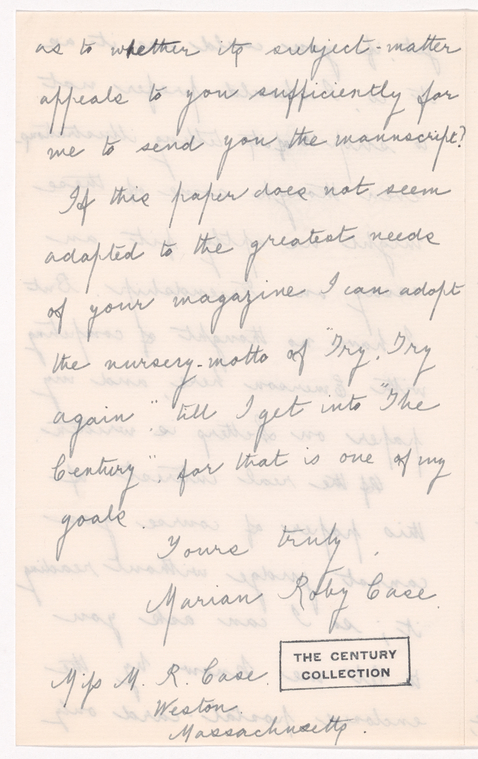 as to whether its subject-matter
appeals to you sufficiently for
me to send you the manuscript?
If this paper does not seem
adapted to the greatest needs
of your magazine I can adopt
the nursery-motto of "Try, Try
again" till I get into "The
Century". for that is one of my
goals.
Yours truly,
Marian Roby Case.
THE CENTURY
COLLECTION
Miss M. R. Case.
Weston.
Massachusetts.